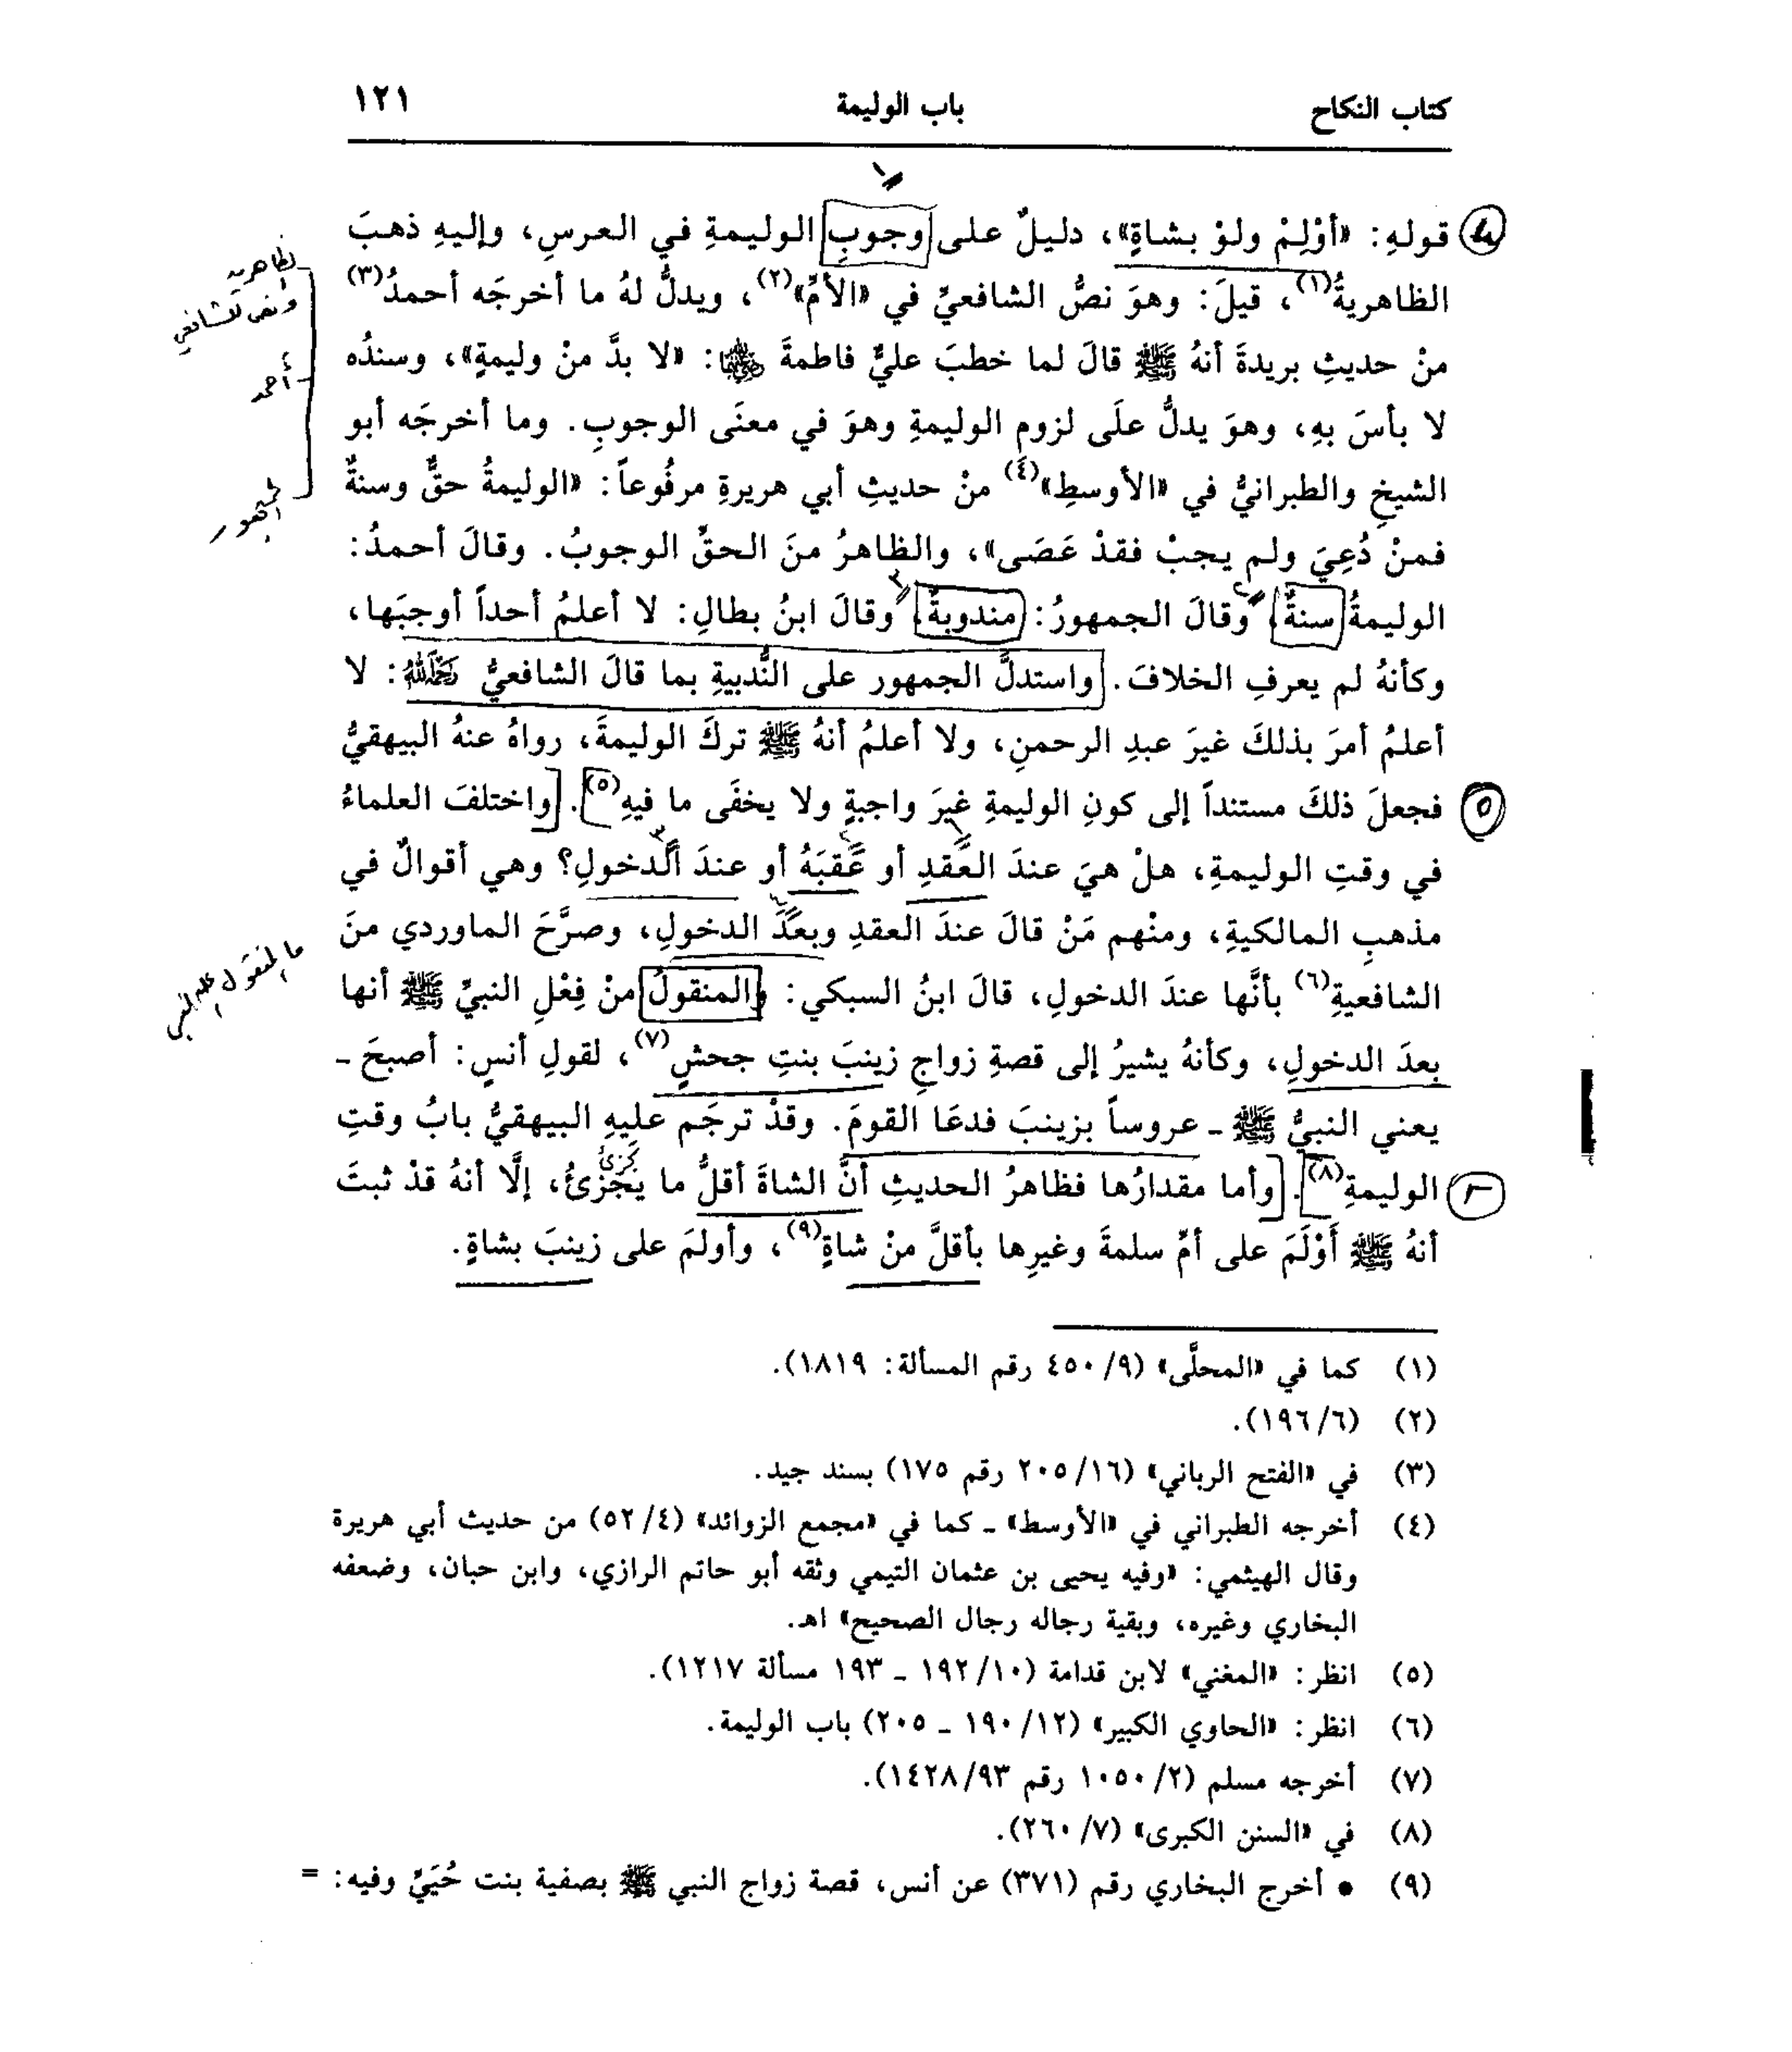 كتاب النكاح باب الوليمة ١٢١
قولهِ: «أوْلِمْ ولوْ بشاةٍ»، دليلٌ على وجوبِ الوليمةِ في العرسِ، وإليهِ ذهبَ
الظاهريةُ(١)، قيلَ: وهوَ نصُّ الشافعيِّ في «الأمِّ»(٢)، ويدلُّ لهُ ما أخرجَه أحمدُ(٣)
منْ حديثِ بريدةَ أنهُ ﷺ قالَ لما خطبَ عليٌّ فاطمةَ رضي الله عنها: «لا بدَّ منْ وليمةٍ»، وسندُه
لا بأسَ بهِ، وهوَ يدلُّ علَى لزومِ الوليمةِ وهوَ في معنَى الوجوبِ. وما أخرجَه أبو
الشيخِ والطبرانيُّ في «الأوسطِ»(٤) منْ حديثِ أبي هريرةِ مرفُوعاً: «الوليمةُ حقٌّ وسنةٌ
فمنْ دُعِيَ ولم يجبْ فقدْ عَصَى»، والظاهرُ منَ الحقِّ الوجوبُ. وقالَ أحمدُ:
الوليمةُ سنةٌ، وقالَ الجمهورُ: مندوبةٌ، وقالَ ابنُ بطالِ: لا أعلمُ أحداً أوجبَها،
وكأنهُ لم يعرفِ الخلافَ. واستدلَّ الجمهور على النُّدبيةِ بما قالَ الشافعيُّ رحمه الله: لا
أعلمُ أمرَ بذلكَ غيرَ عبدِ الرحمنِ، ولا أعلمُ أنهُ ﷺ تركَ الوليمةَ، رواهُ عنهُ البيهقيُّ
٥ فجعلَ ذلكَ مستنداً إلى كونِ الوليمةِ غيرَ واجبةٍ ولا يخفَى ما فيهِ(٥). واختلفَ العلماءُ
في وقتِ الوليمةِ، هلْ هيَ عندَ العقدِ أو عقبَهُ أو عندَ الدخولِ؟ وهي أقوالٌ في
مذهبِ المالكيةِ، ومنْهم مَنْ قالَ عندَ العقدِ وبعدَ الدخولِ، وصرَّحَ الماوردي منَ
الشافعيةِ(٦) بأنَّها عندَ الدخولِ، قالَ ابنُ السبكي: والمنقولُ منْ فِعْلِ النبيِّ ﷺ أنها
بعدَ الدخولِ، وكأنهُ يشيرُ إلى قصةِ زواجِ زينبَ بنتِ جحشٍ(٧)، لقولِ أنسٍ: أصبحَ -
يعني النبيُّ ﷺ - عروساً بزينبَ فدعَا القومَ. وقدْ ترجَم عليهِ البيهقيُّ بابُ وقتِ
الوليمةِ(٨). وأما مقدارُها فظاهرُ الحديثِ أنَّ الشاةَ أقلُّ ما يجْزئُ، إلَّا أنهُ قدْ ثبتَ
أنهُ ﷺ أَوْلَمَ على أمِّ سلمةَ وغيرِها بأقلَّ منْ شاةٍ(٩)، وأولمَ على زينبَ بشاةٍ.
الظاهرية
ونص الشافعي
أحمد
الجمهور
(١) كما في «المحلَّى» (٩/ ٤٥٠ رقم المسألة: ١٨١٩).
(٢) (٦/ ١٩٦).
(٣) في «الفتح الرباني» (١٦/ ٢٠٥ رقم ١٧٥) بسند جيد.
(٤) أخرجه الطبراني في «الأوسط» - كما في «مجمع الزوائد» (٤/ ٥٢) من حديث أبي هريرة
وقال الهيثمي: «وفيه يحيى بن عثمان التيمي وثقه أبو حاتم الرازي، وابن حبان، وضعفه
البخاري وغيره، وبقية رجاله رجال الصحيح» اهـ.
(٥) انظر: «المغني» لابن قدامة (١٠/ ١٩٢ - ١٩٣ مسألة ١٢١٧).
(٦) انظر: «الحاوي الكبير» (١٢/ ١٩٠ - ٢٠٥) باب الوليمة.
(٧) أخرجه مسلم (٢/ ١٠٥٠ رقم ٩٣/ ١٤٢٨).
(٨) في «السنن الكبرى» (٧/ ٢٦٠).
(٩) • أخرج البخاري رقم (٣٧١) عن أنس، قصة زواج النبي ﷺ بصفية بنت حُيَيِّ وفيه: =